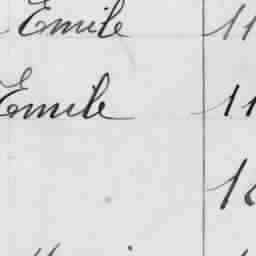 Emile 11
Emile 11